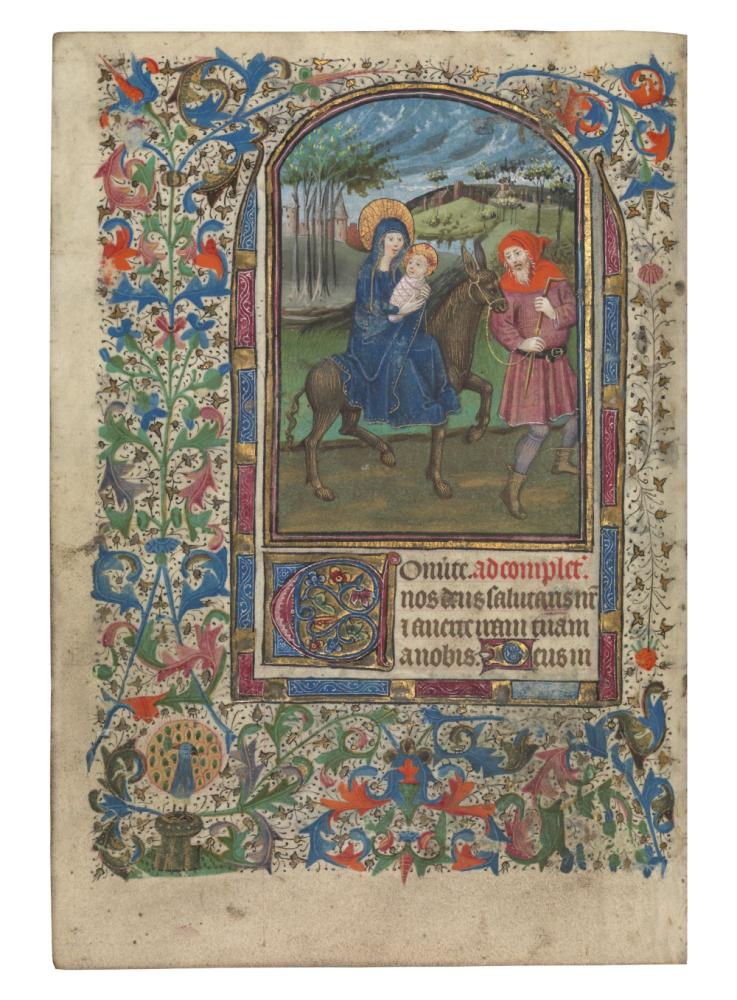 Conũte. ad complet̃.
nos deus salutaris nr̃
i auerte iram tuam
a nobis. Deus in